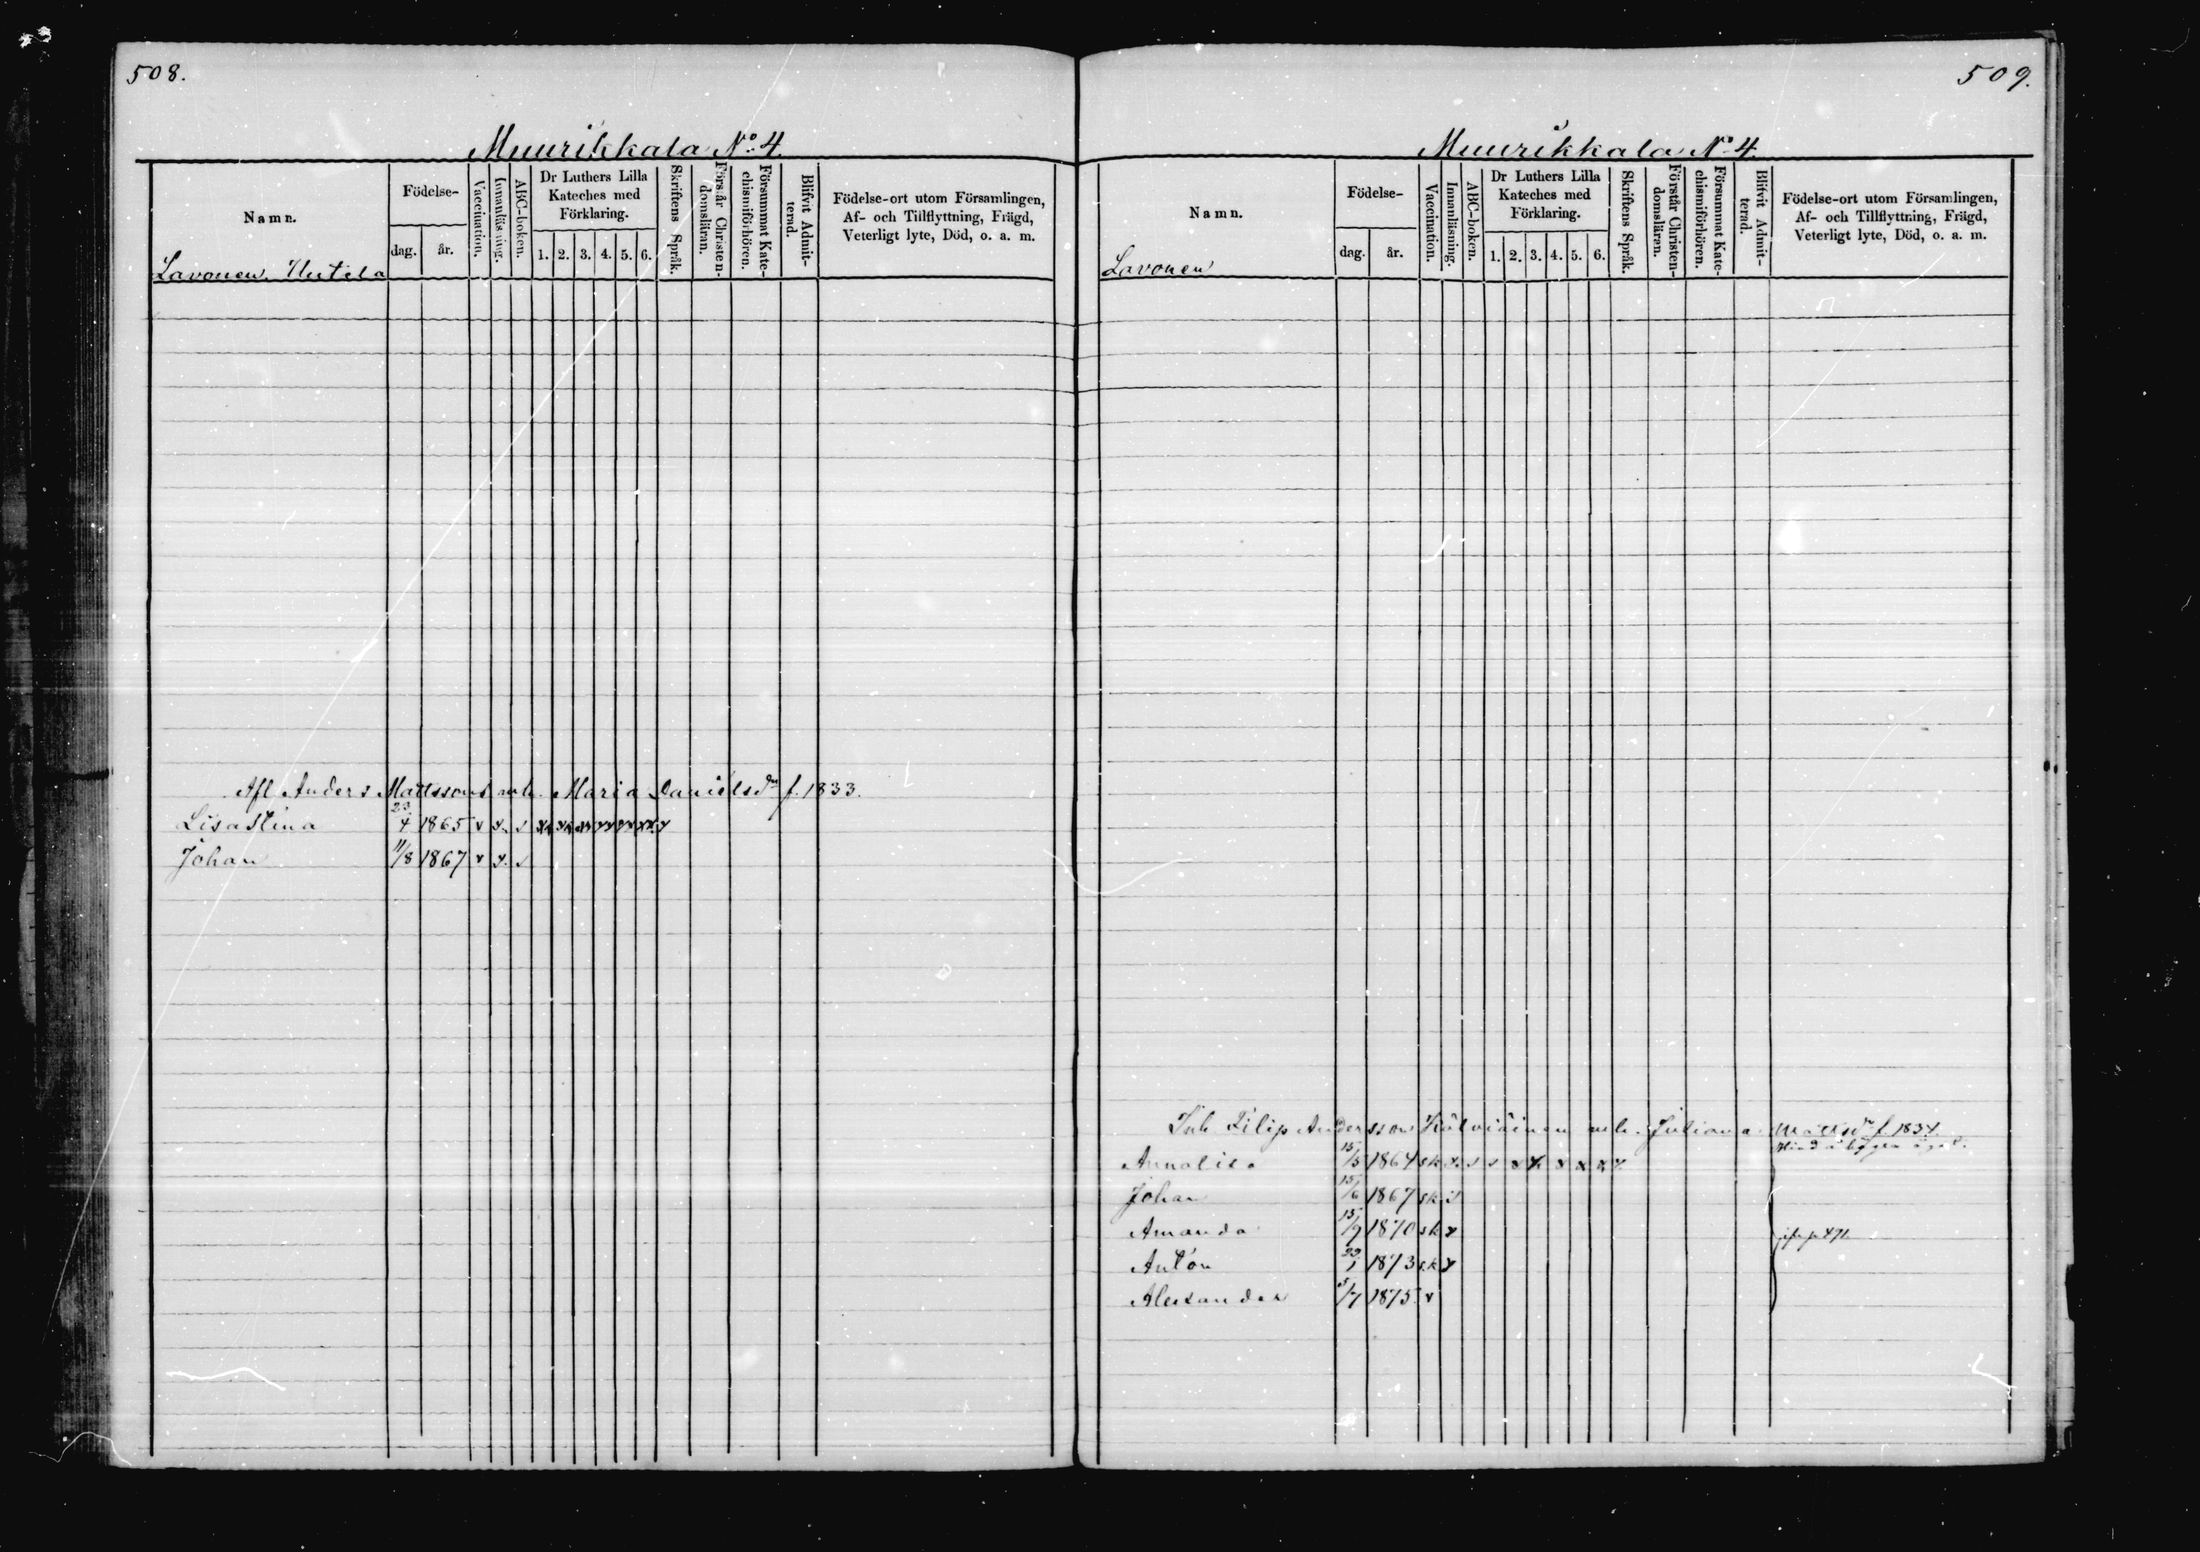 508.
Muurikkala No 4.
Namn.
Födelse-
dag.
år.
Vaccination.
Innanläsning.
ABC-boken.
Dr Luthers Lilla
Kateches med
Förklaring.
1. 2. 3. 4. 5. 6.
Skriftens Språk.
Förstår Christen-
domsläran.
Försummat Kate-
chismiförhören.
Blifvit Admit-
terad.
Födelse-ort utom Församlingen,
Af- och Tillflyttning, Frägd,
Veterligt lyte, Död, o. a. m.
Lavonen, Hutela
Afl Anders Mattssons enk. Maria Danielsdr f. 1833.
Lisastina 23/4 1865 v x s
Johan 11/8 1867 v x s
509.
Muurikkala No 4.
Namn.
Födelse-
dag.
år.
Vaccination.
Innanläsning.
ABC-boken.
Dr Luthers Lilla
Kateches med
Förklaring.
1. 2. 3. 4. 5. 6.
Skriftens Språk.
Förstår Christen-
domsläran.
Försummat Kate-
chismiförhören.
Blifvit Admit-
terad.
Födelse-ort utom Församlingen,
Af- och Tillflyttning, Frägd,
Veterligt lyte, Död, o. a. m.
Lavonen
Inh Filip Andersson Juliana Mattsdr f. 1834.
Annalisa 15/5 1864 sk x s s x x x x x x
Johan 15/6 1867 sk s
Amanda 15/9 1870 sk x
Anton 1873 sk x
Alexander 5/7 1875 v